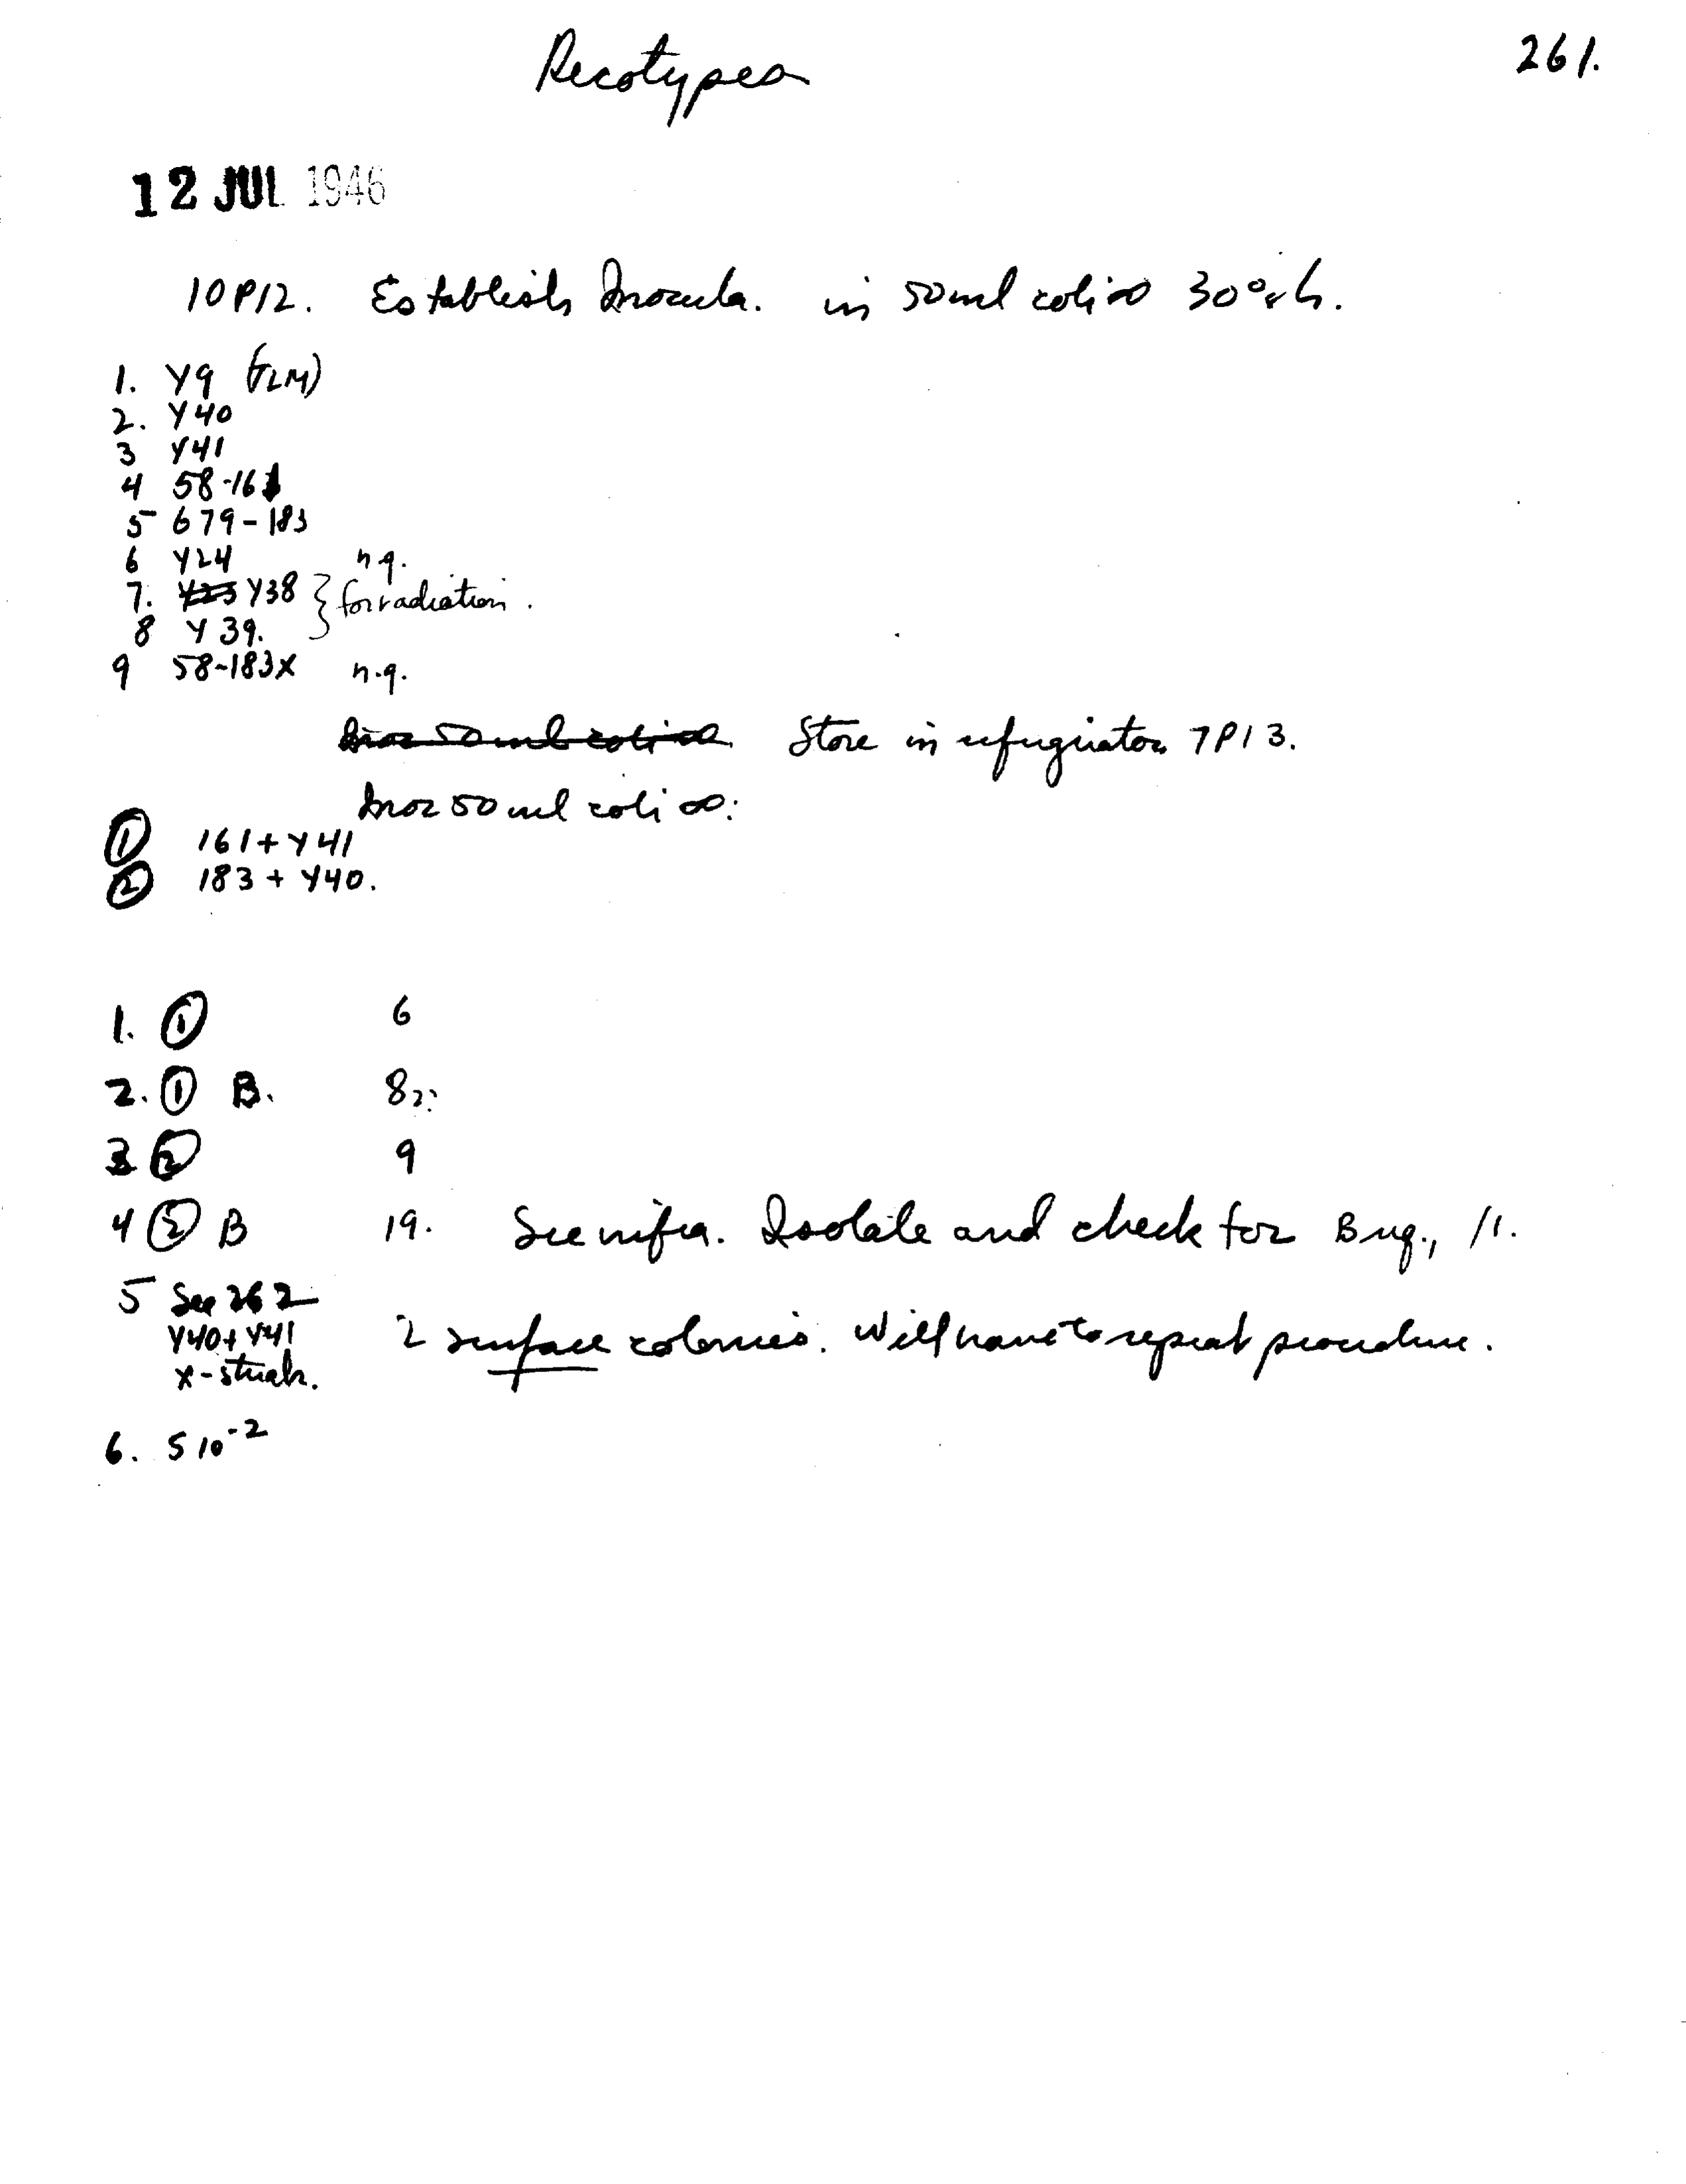 Recotypes
261.
12 JUL 1946
10P12. Establish Inocula. in 50 ml coli ∞ 30° sh.
1. Y9 (TLM)
2. Y40
3 Y41
4 58-161
5 679-183
6 Y24 n.g.
7. Y23 Y38 } for radiation.
8 Y39.
9 58-183X n.g.
Inoc 50 ml coli ∞. Store in refrigerator 7P13.
Inoc 50 ml coli ∞:
① 161+Y41
② 183+Y40.
1. ① 6
2. ① B. 8
3 ② 9
4 ② B 19. See infra. Isolate and check for B 11.
5 See 262
Y40+Y41 2 surface colonies. Will have to repeat procedure.
x-streak.
6. 5 10⁻²